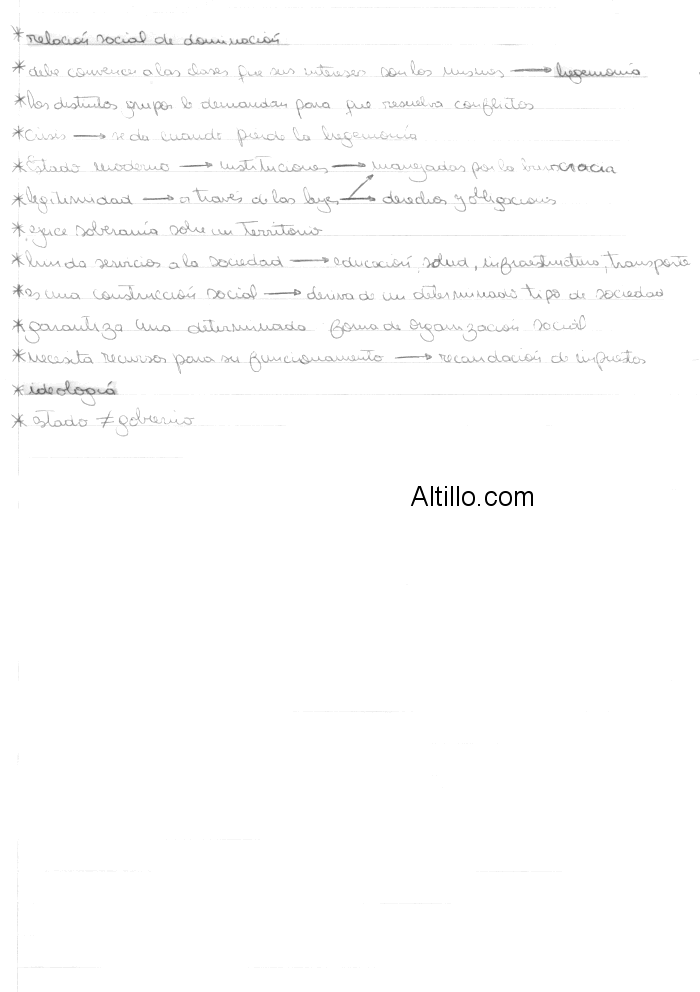 * relación social de dominación
* debe convencer a las clases que sus intereses son los mismos → hegemonía
* los distintos grupos le demandan para que resuelva conflictos
* Crisis → se da cuando pierde la hegemonía
* Estado moderno → instituciones → manejadas por la burocracia
* legitimidad → a través de las leyes → derechos y obligaciones
* ejerce soberanía sobre un territorio
* brinda servicios a la sociedad → educación, salud, infraestructura, transporte
* es una construcción social → deriva de un determinado tipo de sociedad
* garantiza una determinada forma de organización social
* necesita recursos para su funcionamiento → recaudación de impuestos
* ideología
* estado ≠ gobierno
Altillo.com